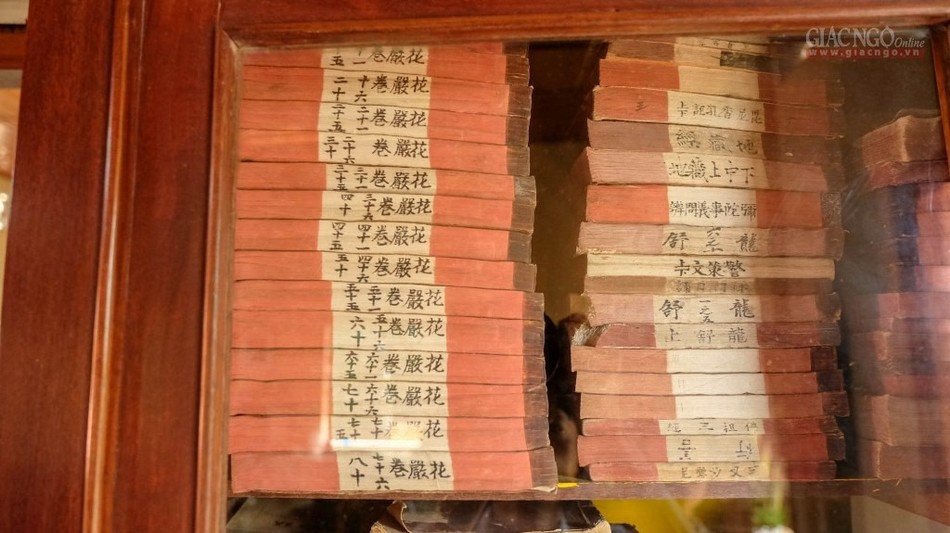 GIÁC NGỘ Online
www.giacngo.vn
花嚴卷十一
花嚴卷十六二十
花嚴卷二十一二十五
花嚴卷二十六三十
花嚴卷三十一三十五
花嚴卷三十六四十
花嚴卷四十一四十五
花嚴卷四十六五十
花嚴卷五十一五十五
花嚴卷五十六六十
花嚴卷六十一六十五
花嚴卷六十六七十
花嚴卷七十一七十五
花嚴卷七十六八十
地藏經
地藏上中下
龍舒六之十
警策文
龍舒一之五
龍舒上
佛祖三經